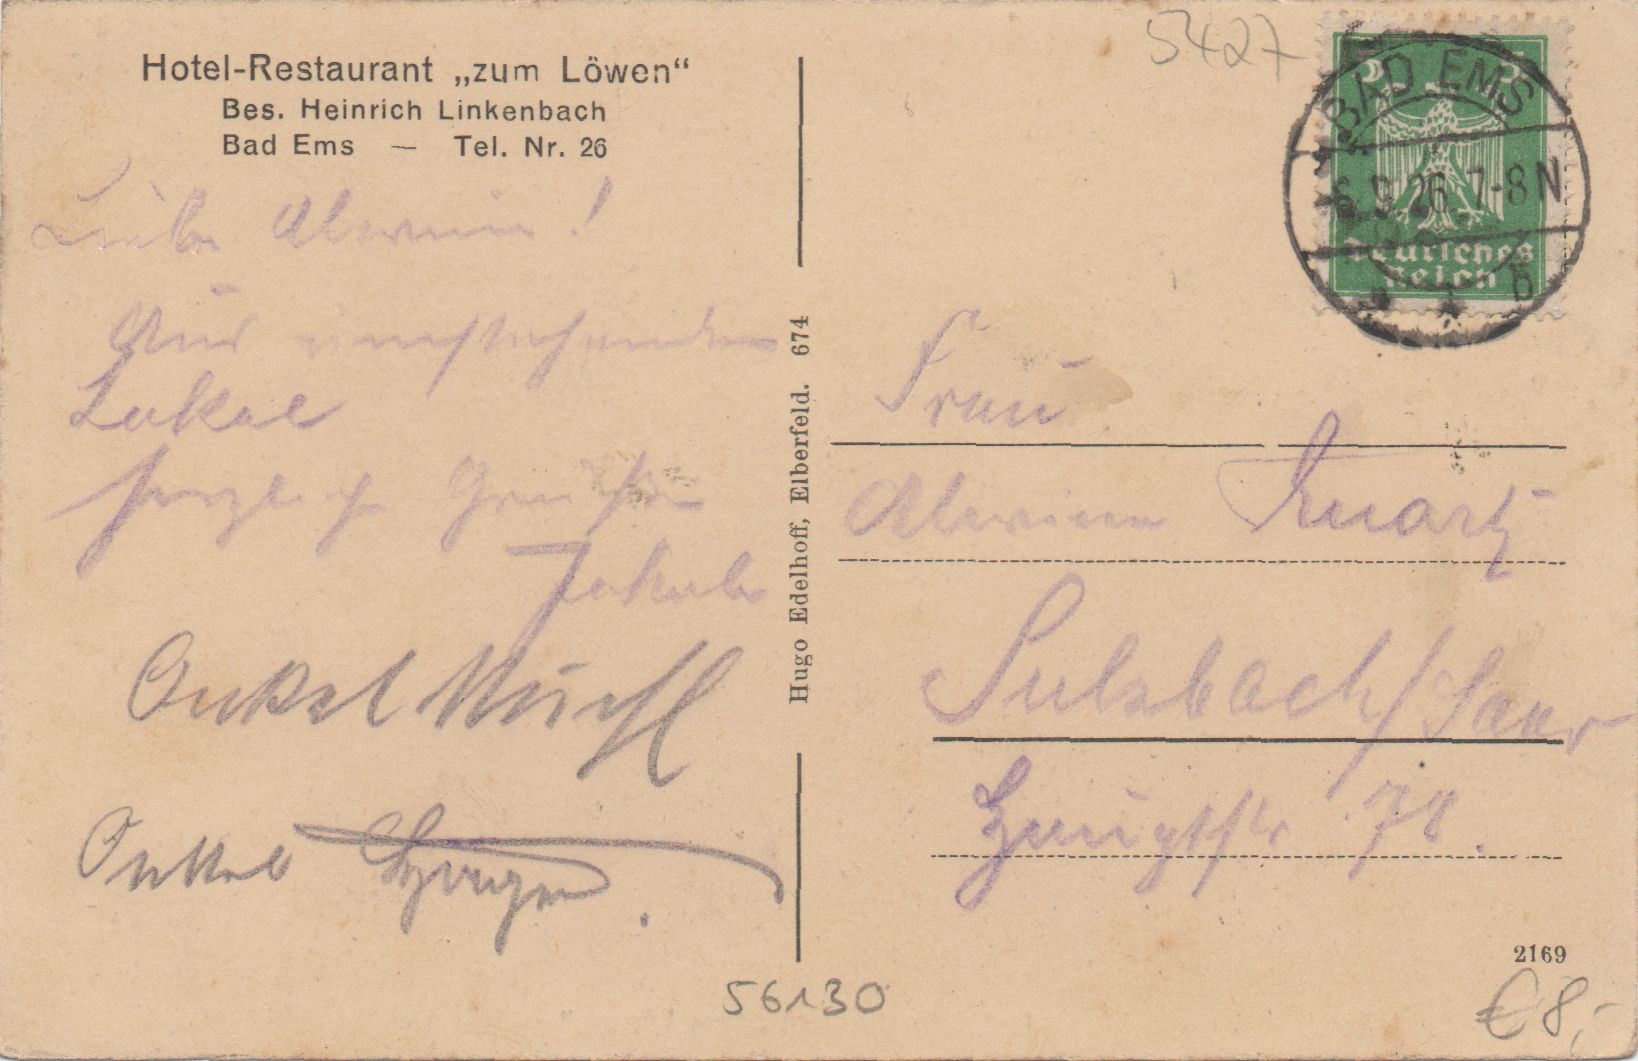 5427
Hotel-Restaurant „zum Löwen“
Bes. Heinrich Linkenbach
Bad Ems — Tel. Nr. 26
Liebe Alwine!
Aus umstehenden
Lokal
herzliche Grüße
Jakob
Onkel
Onkel
Hugo Edelhoff, Elberfeld. 674
5
BAD EMS
6.9.26.7-8N
b
Deutsches
Reich
Frau
Alwine
Sulzbach/Saar
Hauptstr 78.
2169
56130
€8,-